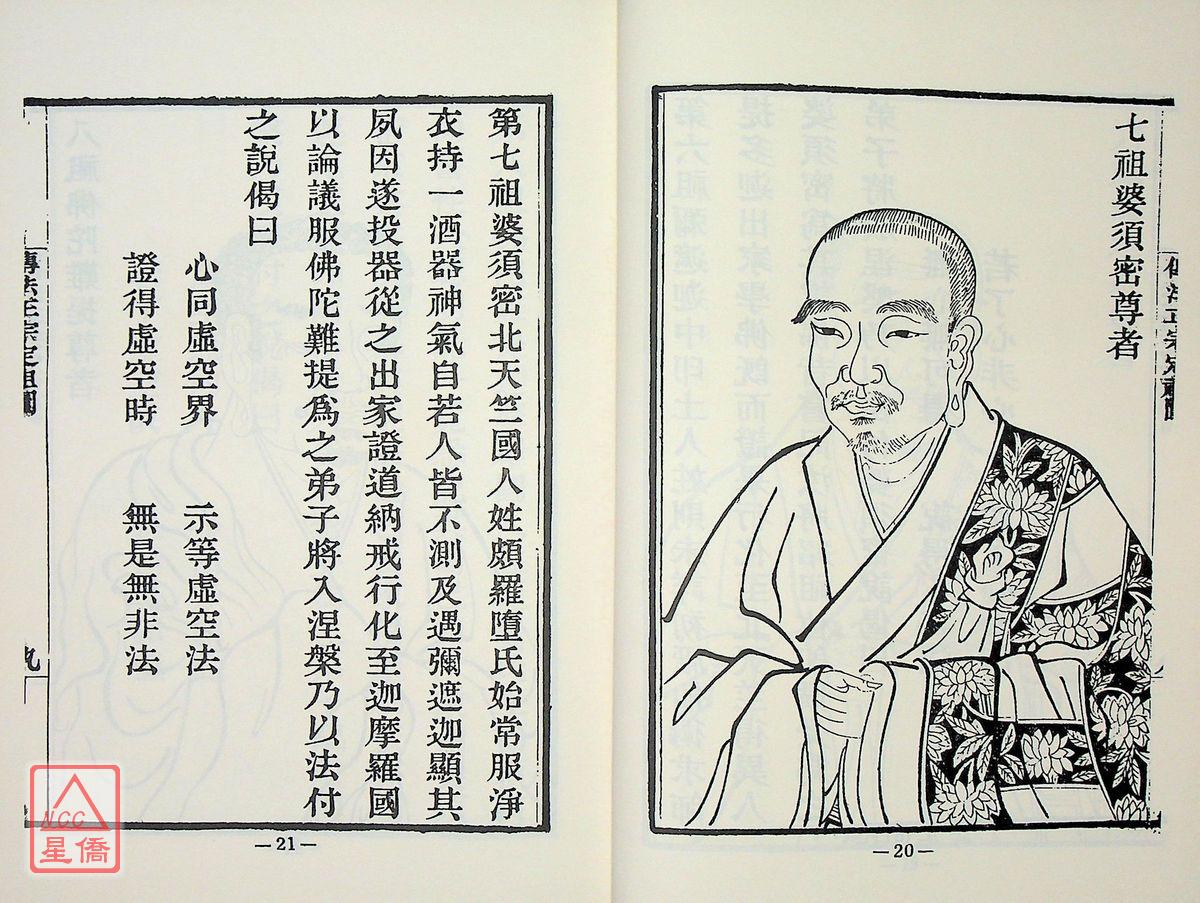 七祖婆須密尊者
傳法正宗定祖圖
—20—
第七祖婆須密北天竺國人姓頗羅墮氏始常服淨
衣持一酒器神氣自若人皆不測及遇彌遮迦顯其
夙因遂投器從之出家證道納戒行化至迦摩羅國
以論議服佛陀難提爲之弟子將入涅槃乃以法付
之說偈曰
心同虛空界　示等虛空法
證得虛空時　無是無非法
傳法正宗定祖圖
九
—21—
NCC
星僑